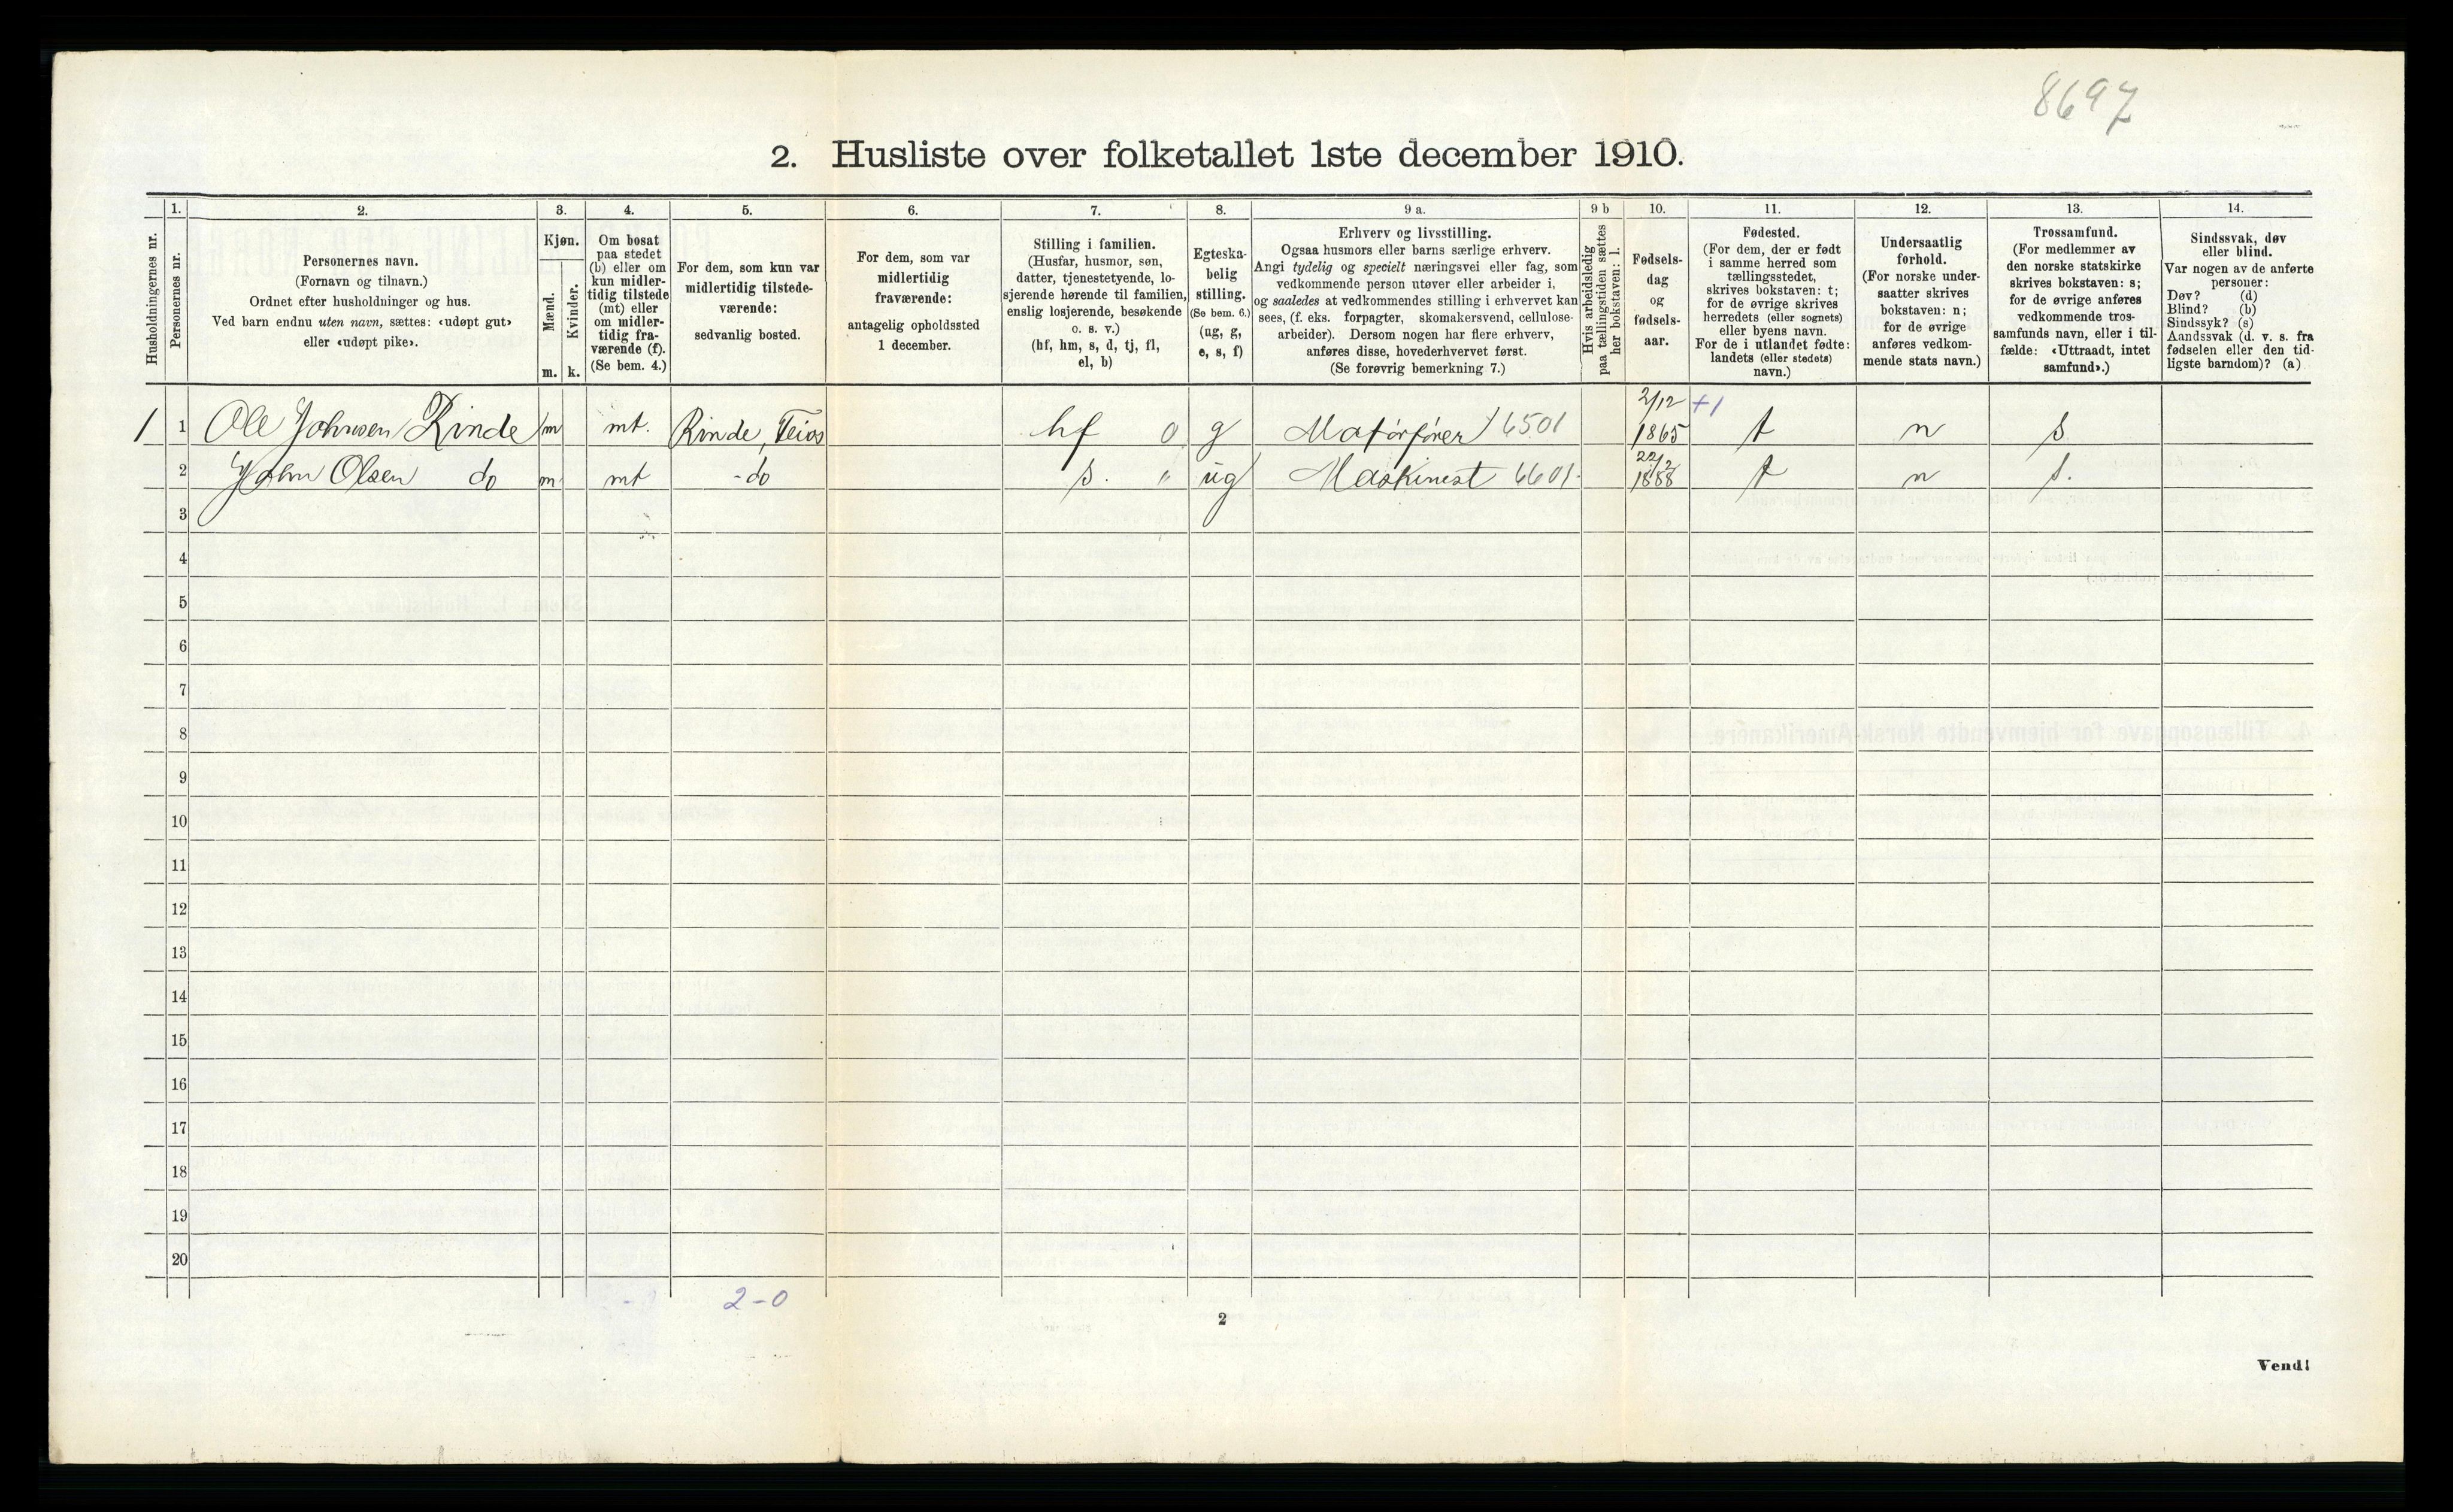 8697
2. Husliste over folketallet 1ste december 1910.
Husholdningernes nr.
1.
Personernes nr.
2.
Personernes navn.
(Fornavn og tilnavn.)
Ordnet efter husholdninger og hus.
Ved barn endnu uten navn, sættes: «udøpt gut»
eller «udøpt pike».
3.
Kjøn.
Mænd.
Kvinder.
m. k.
4.
Om bosat
paa stedet
(b) eller om
kun midler-
tidig tilstede
(mt) eller
om midler-
tidig fra-
værende (f).
(Se bem. 4.)
5.
For dem, som kun var
midlertidig tilstede-
værende:
sedvanlig bosted.
6.
For dem, som var
midlertidig
fraværende:
antagelig opholdssted
1 december.
7.
Stilling i familien.
(Husfar, husmor, søn,
datter, tjenestetyende, lo-
sjerende hørende til familien,
enslig losjerende, besøkende
o. s. v.)
(hf, hm, s, d, tj, fl,
el, b)
8.
Egteska-
belig
stilling.
(Se bem. 6.)
(ug, g,
e, s, f)
9 a.
Erhverv og livsstilling.
Ogsaa husmors eller barns særlige erhverv.
Angi tydelig og specielt næringsvei eller fag, som
vedkommende person utøver eller arbeider i,
og saaledes at vedkommendes stilling i erhvervet kan
sees, (f. eks. forpagter, skomakersvend, cellulose-
arbeider). Dersom nogen har flere erhverv,
anføres disse, hovederhvervet først.
(Se forøvrig bemerkning 7.)
9 b
Hvis arbeidsledig
paa tællingstiden sættes
her bokstaven: l.
10.
Fødsels-
dag
og
fødsels-
aar.
11.
Fødested.
(For dem, der er født
i samme herred som
tællingsstedet,
skrives bokstaven: t;
for de øvrige skrives
herredets (eller sognets)
eller byens navn.
For de i utlandet fødte:
landets (eller stedets)
navn.)
12.
Undersaatlig
forhold.
(For norske under-
saatter skrives
bokstaven: n;
for de øvrige
anføres vedkom-
mende stats navn.)
13.
Trossamfund.
(For medlemmer av
den norske statskirke
skrives bokstaven: s;
for de øvrige anføres
vedkommende tros-
samfunds navn, eller i til-
fælde: «Uttraadt, intet
samfund».)
14.
Sindssvak, døv
eller blind.
Var nogen av de anførte
personer:
Døv? (d)
Blind? (b)
Sindssyk? (s)
Aandssvak (d. v. s. fra
fødselen eller den tid-
ligste barndom)? (a)
1 1 Ole Johnsen Rinde m mt. Rinde, Feios hf 0 g Motorfører 6501 2/12 1865 +1 t n s
2 John Olsen do m mt -do s. " ug Maskinest 6601 22/2 1888 t n s.
3
4
5
6
7
8
9
10
11
12
13
14
15
16
17
18
19
20
2-0
2
Vend!